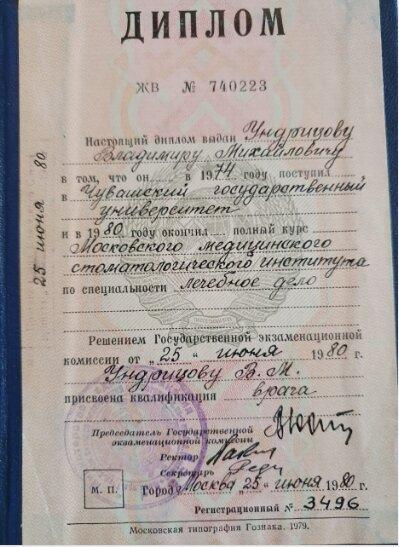 ДИПЛОМ
ЖВ № 740223
Настоящий диплом выдан Ундрицову
Владимиру Михайловичу
в том, что он в 1974 году поступил
в Чувашский государственный
университет
и в 1980 году окончил полный курс
Московского медицинского
стоматологического института
по специальности лечебное дело
Решением Государственной экзаменационной
комиссии от „25" июня 1980 г.
Ундрицову В. М.
присвоена квалификация врача
Председатель Государственной
экзаменационной комиссии
Ректор
Секретарь
М. П.
Город Москва „25" июня 1980 г.
Регистрационный № 3496
Московская типография Гознака. 1979.
25 июня 80